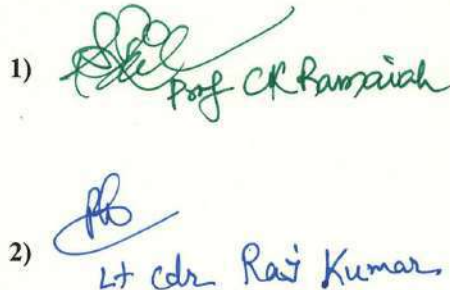 1)
Prof CK Ramaiah
2)
Lt cdr Ravi Kumar